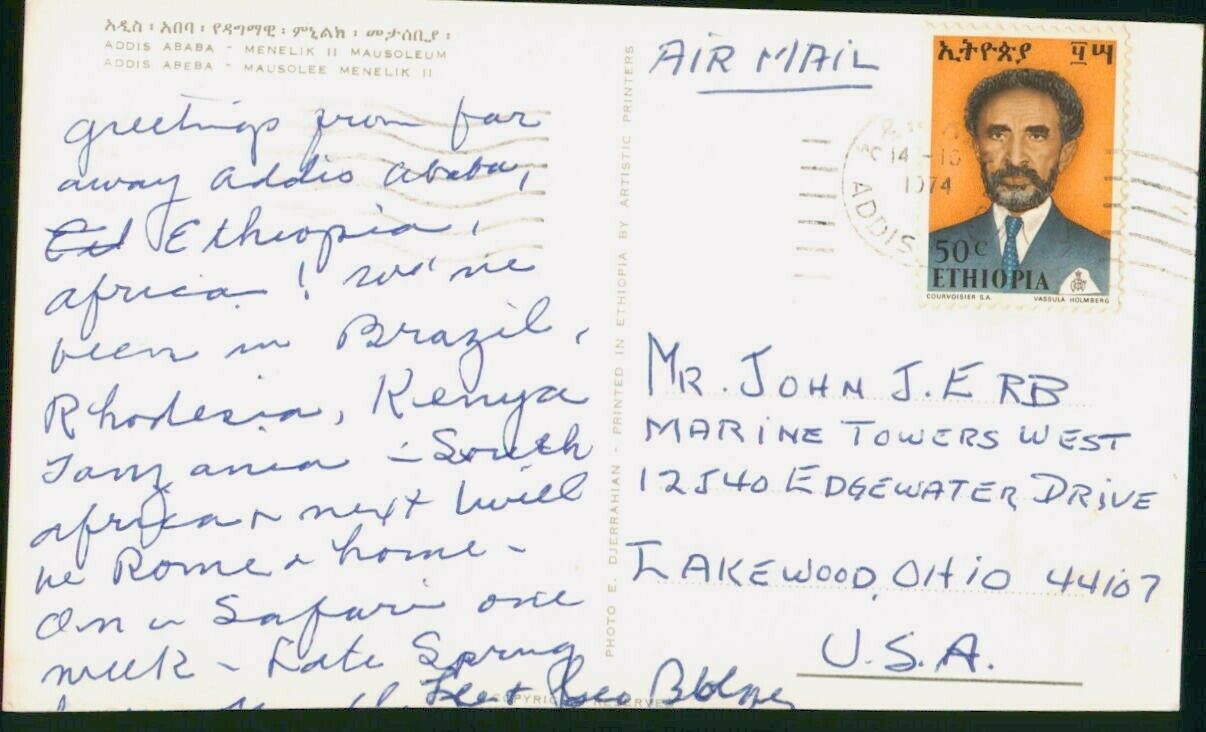 አዲስ ፡ አበባ ፡ የዳግማዊ ፡ ምኒልክ ፡ መታሰቢያ ፡
ADDIS ABABA - MENELIK II MAUSOLEUM
ADDIS ABEBA - MAUSOLEE MENELIK II
greetings from far
away Addis Ababa,
Ethiopia,
Africa! We've
been in Brazil,
Rhodesia, Kenya
Tanzania - South
Africa & next will
be Rome & home -
On a Safari one
week - Late Spring
PHOTO E. DJERRAHIAN - PRINTED IN ETHIOPIA BY ARTISTIC PRINTERS
COPYRIGHT RESERVED
AIR MAIL
ኢትዮጵያ ፶ ሣ
14 -18
1974
ADDIS
50c
ETHIOPIA
COURVOISIER S.A. VASSULA HOLMBERG
MR. JOHN J. ERB
MARINE TOWERS WEST
12540 EDGEWATER DRIVE
LAKEWOOD, OHIO 44107
U.S.A.